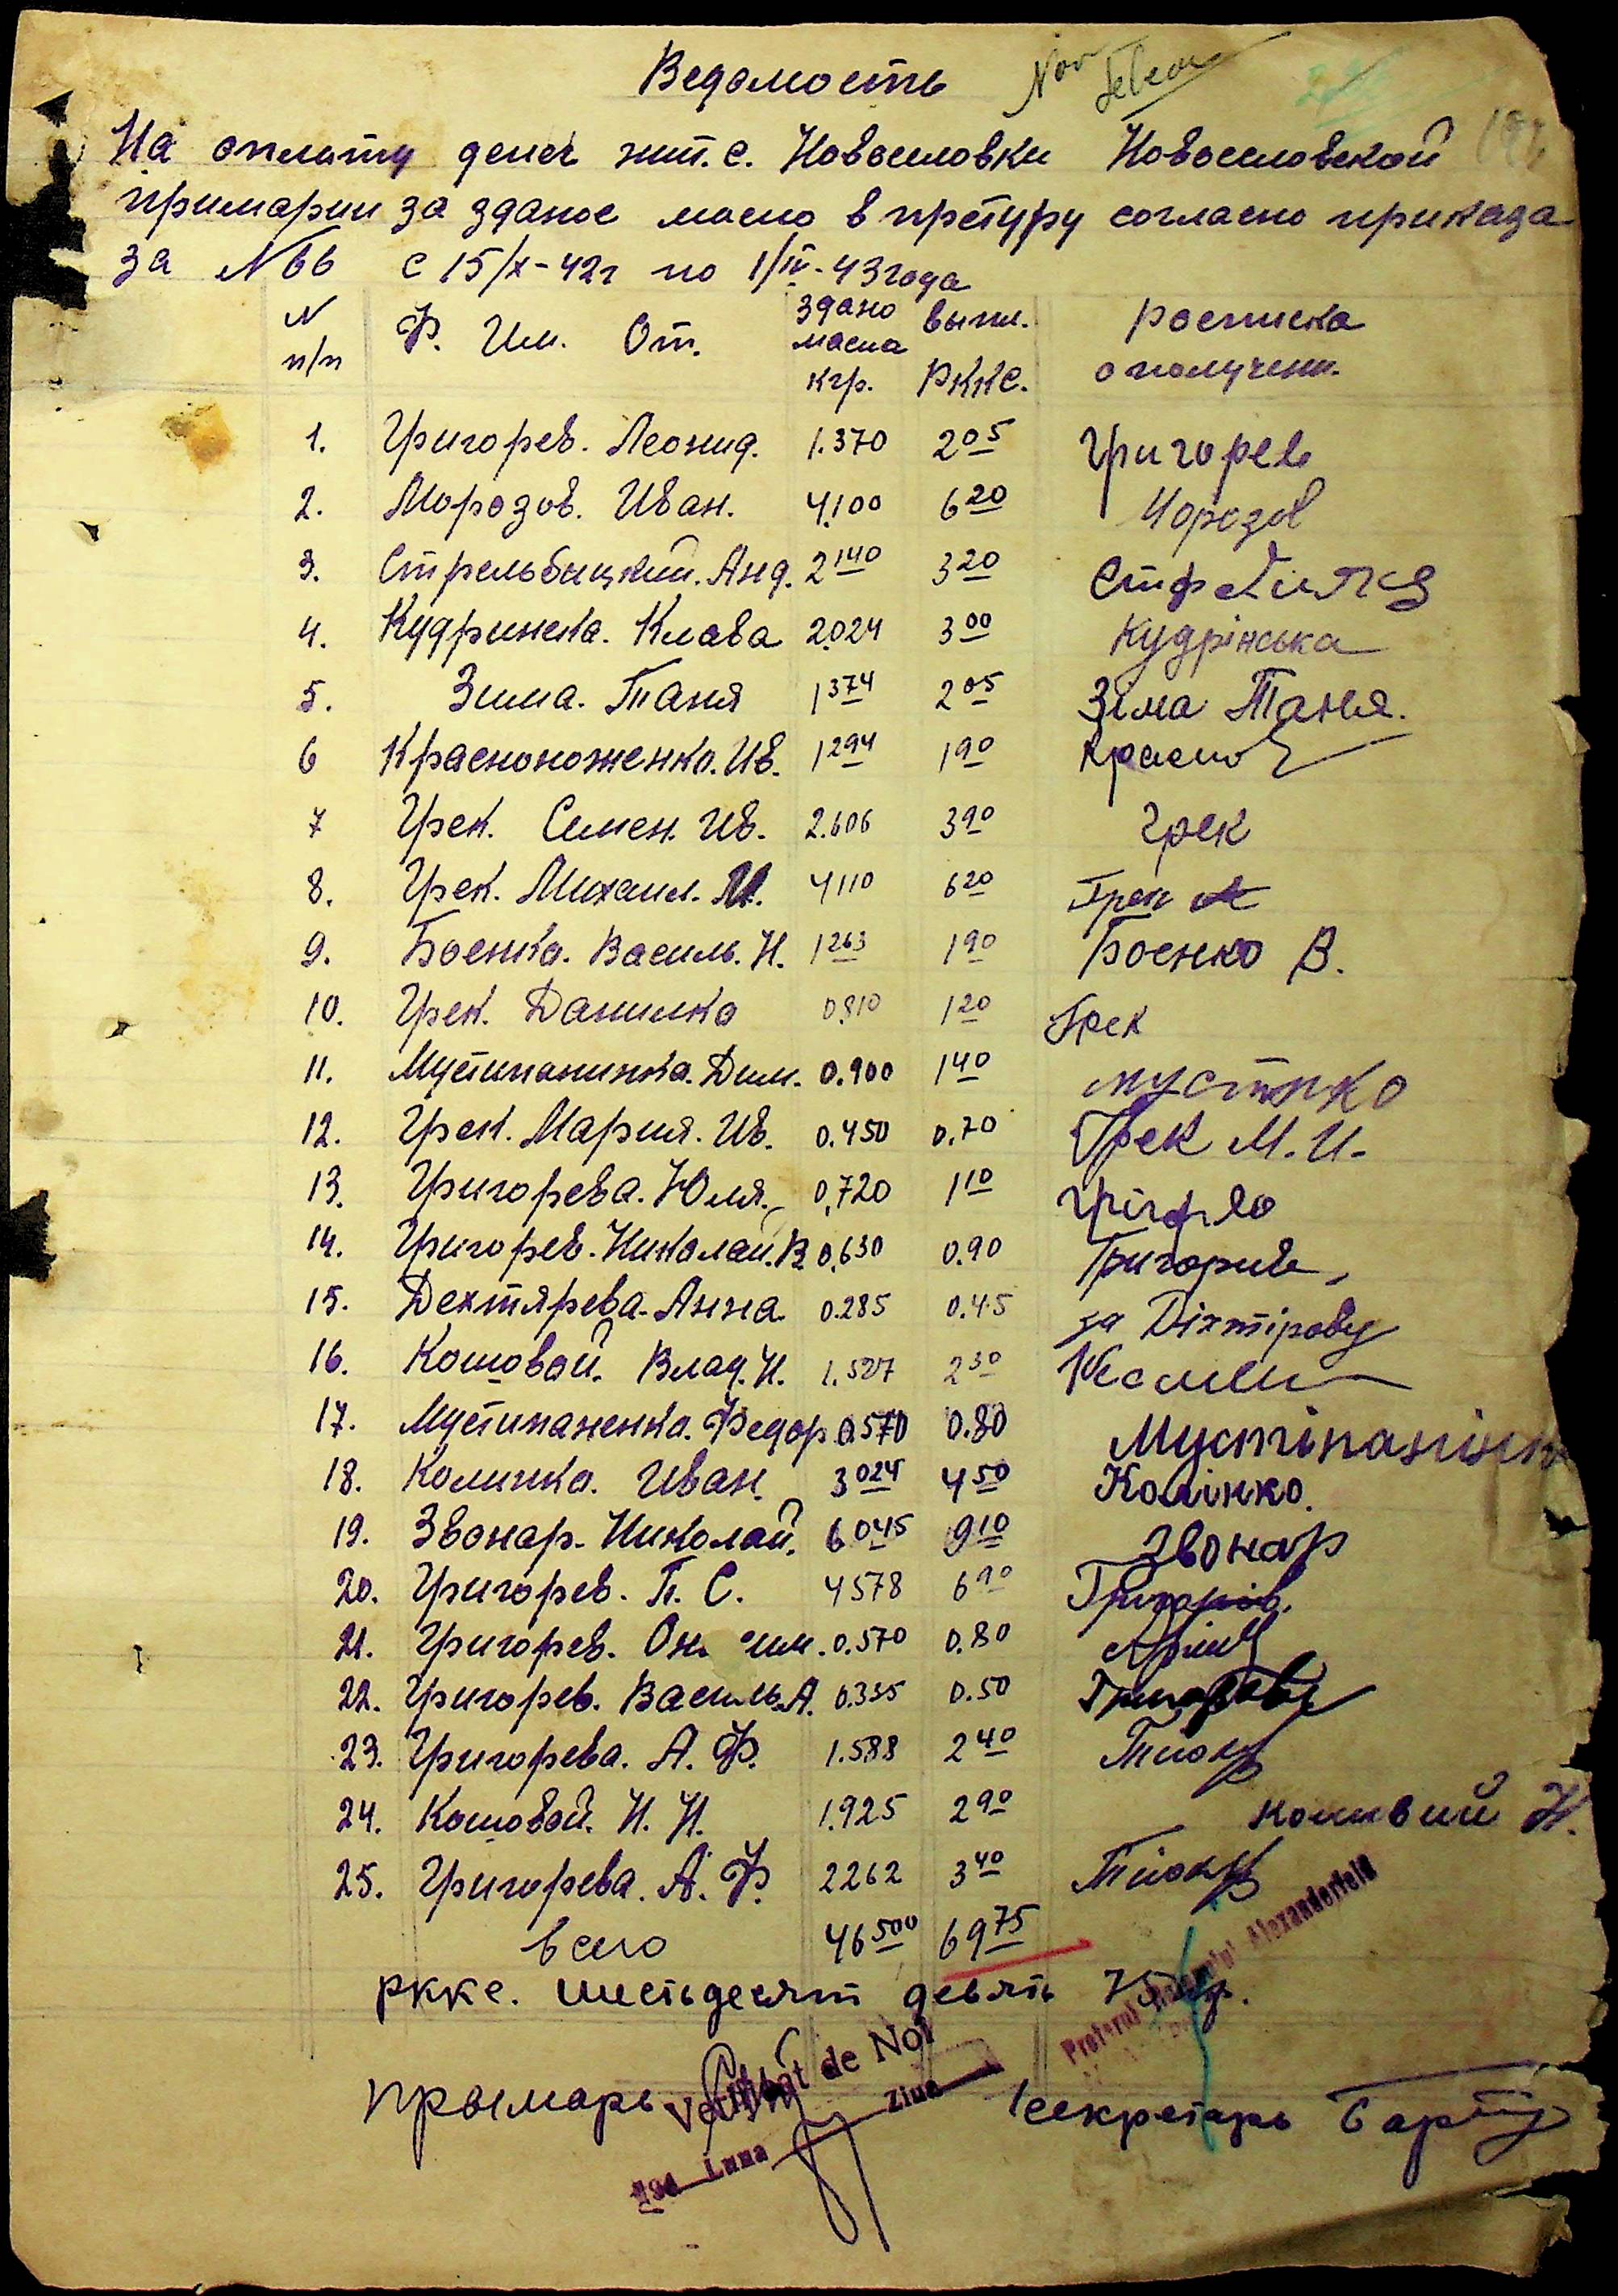 Ведомость
На оплату денег жит. с. Новоселовки Новоселовской
примарии за зданое масло в претуру согласно приказа
за № 66 с 15/X-42г по 1/IV-43 года
N п/п Ф. Им. От. здано масла кгр. выпл. РККС. росписка о получени.
1. Григорев. Леонид. 1.370 2 05 Григорев
2. Морозов. Иван. 4,100 6 20 Морозов
3. Стрельбицкий. Анд. 2 140 3 20
4. Кудринска. Клава 2.024 3 00 Кудрінська
5. Зима. Таня 1 374 2 05 Зіма Таня.
6 Красноноженко. Ив. 1 294 1 90 Красно
7 Грек. Семен. Ив. 2.606 3 90 Грек
8. Грек. Михаил. М. 4110 6 20 Грек
9. Боенко. Василь. Н. 1 263 1 90 Боенко В.
10. Грек. Данилко 0.810 1 20 Грек
11. Мустипаненко. Дим. 0.900 1 40
12. Грек. Мария. Ив. 0.450 0.70 Грек М. И.
13. Григорева. Юля. 0,720 1 10
14. Григорев. Николай. В 0,630 0.90
15. Дехтярева. Анна. 0.285 0.45 за Діхтірову
16. Кошовой. Влад. И. 1.527 2 30
17. Мустипаненко. Федор 0.570 0.80 Мустіпанінко
18. Колинко. Иван. 3 024 4 50 Колінко.
19. Звонар. Николай. 6 045 9 10 Звонар
20. Григорев. П. С. 4578 6 90 Григорів.
21. Григорев. Он им. 0.570 0.80
22. Григорев. Василь. А. 0.335 0.50
23. Григорева. А. Ф. 1.588 2 40
24. Кошовой. И. И. 1.925 2 90
25. Григорева. А. Ф. 2262 3 40
всего 46 500 69 75
ркке. шестьдесят девять 75
Pretorul Alexanderfeld
примарь Verificat de Noi секретарь
Luna Ziua